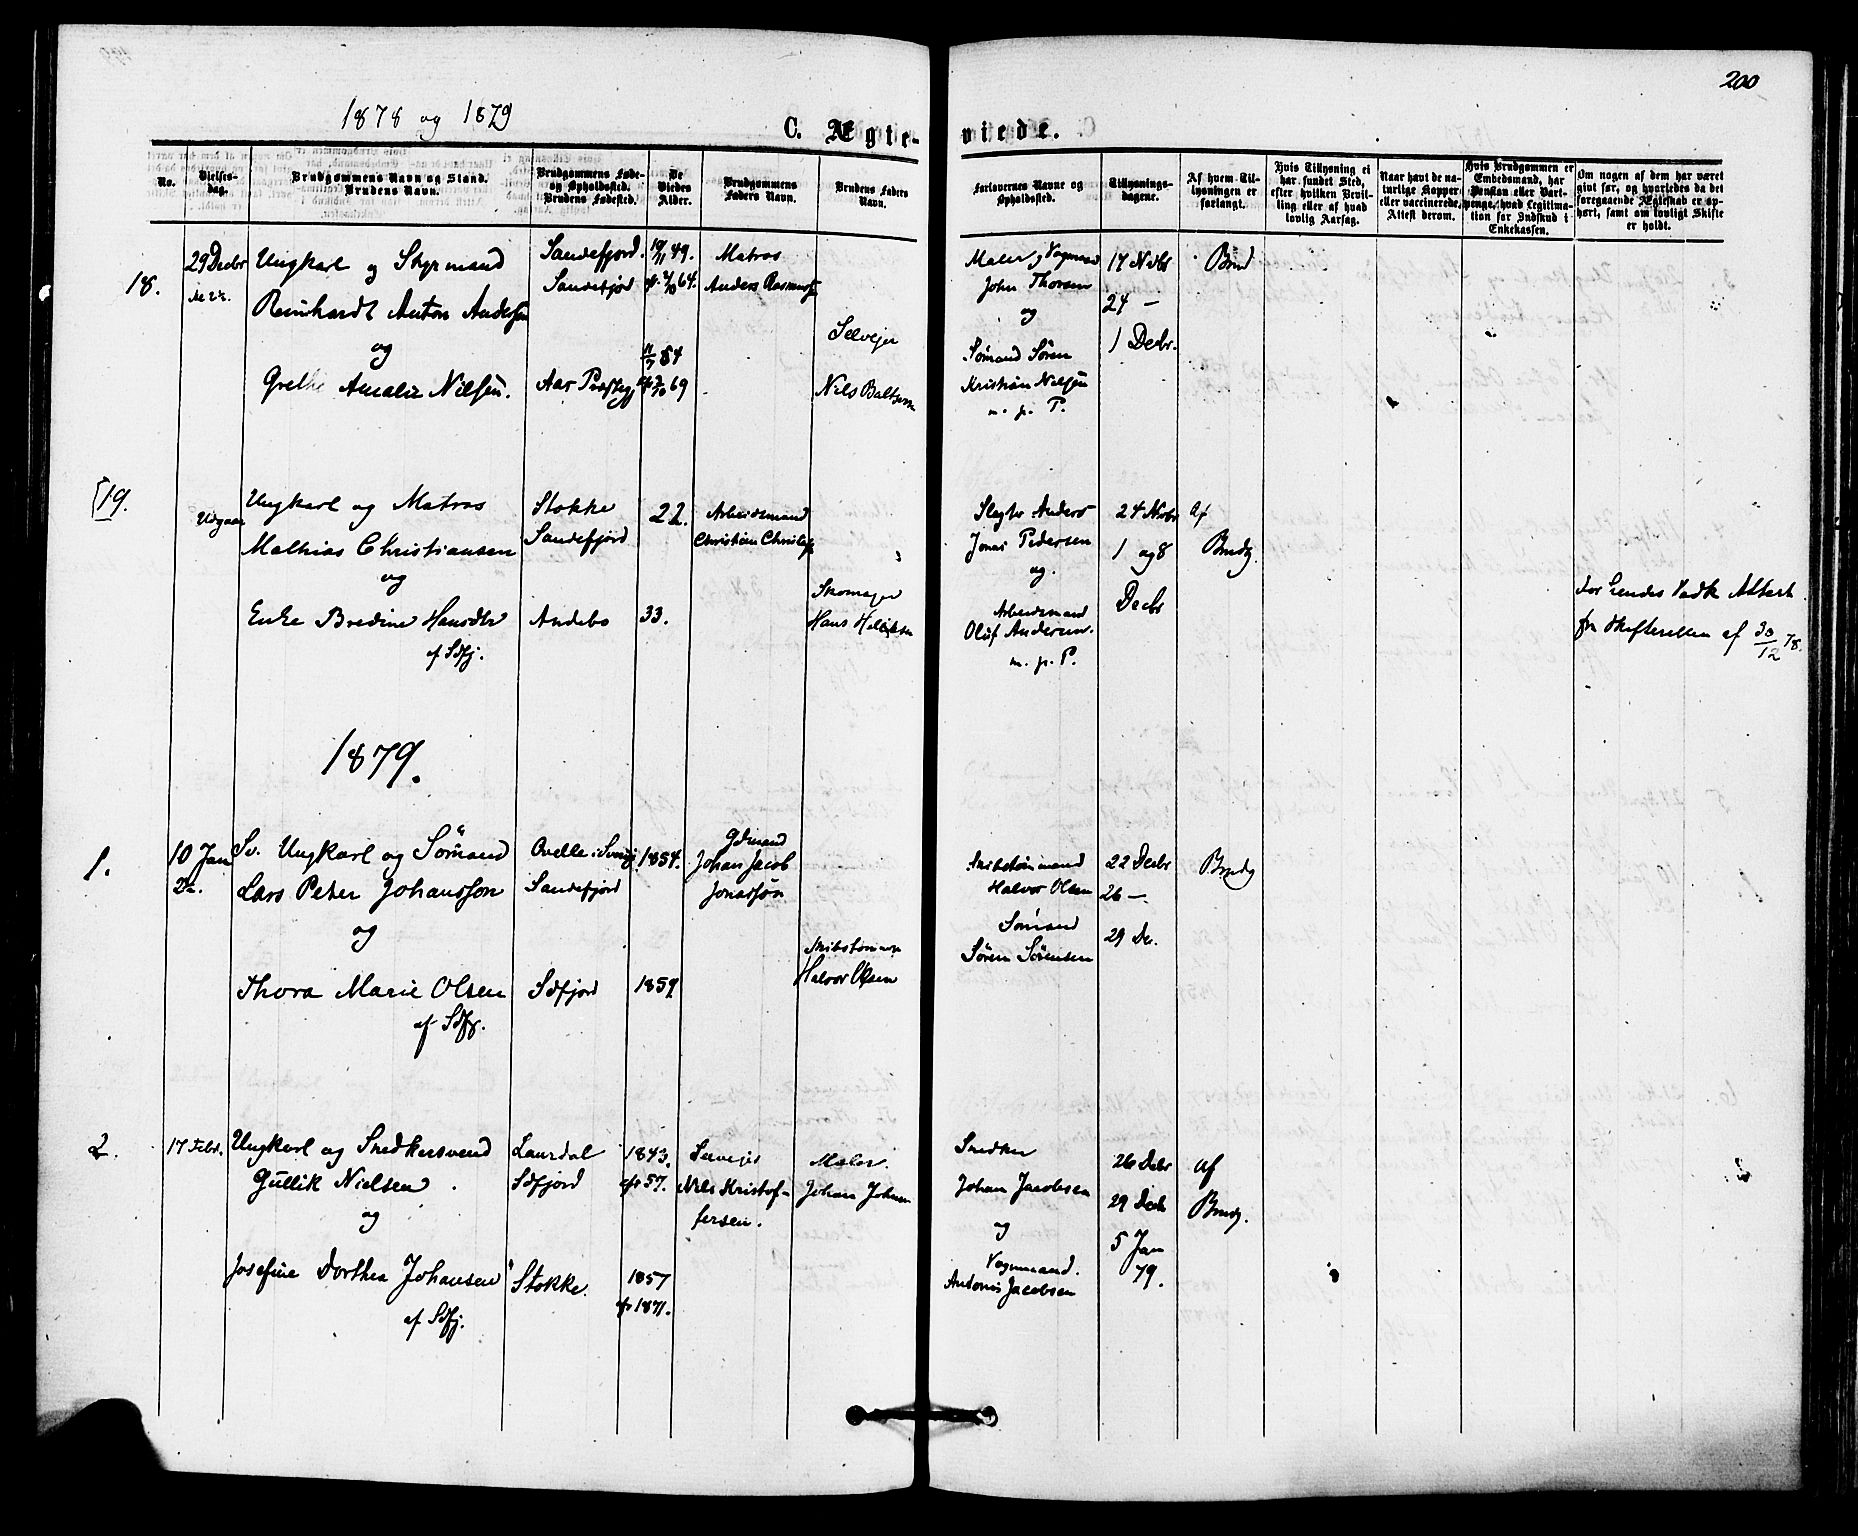 200
1878 og 1879
C. Ægte-viede.
No.
Vielses-
dag.
Brudgommens Navn og Stand.
Brudens Navn.
Brudgommens Føde-
og Opholdssted.
Brudens Fødested.
De
Viedes
Alder.
Brudgommens
Faders Navn.
Brudens Faders
Navn.
Forlovernes Navne og
Opholdssted.
Tillysnings-
dagene.
Af hvem Til-
lysningen er
forlangt.
Hvis Tillysning ei
har fundet Sted,
efter hvilken Bevil-
ling eller af hvad
lovlig Aarsag.
Naar havt de na-
turlige Kopper
eller vaccinerede,
Attest derom.
Hvis Brudgommen er
Embedsmand, har
Pension eller Vart-
penge, hvad Legitima-
tion for Indskud i
Enkekassen.
Om nogen af dem har været
givt før, og hvorledes da det
foregaaende Ægteskab er op-
hørt, samt om lovligt Skifte
er holdt.
18.
29 Decbr
Ungkarl og Styrmand
Reinhardt Anton Andersen
og
Grethe Amalie Nilsen.
Sandefjord.
Sandefjord
Aas Præstegj
19/11 49.
64.
11/7 54
69
Matros
Anders Rasmus
Selveier
Nils Baltsersen
Maler, Vognmand
John Thorsen
og
Sømand Søren
Kristian Nielsen
m. p. P.
17 Nvbr
24 —
1 Decbr.
Brud
19.
Udgaar
Ungkarl og Matros
Mathias Christiansen
og
Enke Bredine Hansdtr
af Sdfj.
Stokke
Sandefjord
Andebo
22.
33.
Arbeidsmand
Christian Christofs
Skomager
Hans Helliksen
Slagter Anders
Jonas Pedersen
og.
Arbeidsmand
Oluf Andersen.
m. p. P.
24 Novbr
1 og 8
Decbr
Af
Brudg.
Attest
fra Skifteretten af 30/12 78.
1879.
1.
10 Jan
Do.
Sv. Ungkarl og Sømand
Lars Peter Johansson
og
Thora Marie Olsen
af Sdfj.
Sverige
Sandefjord
Sdfjord
1854.
1859
Gdmand
Johan Jacob
Jonassøn
Skibstømmer
Halvor Olsen
Skibstømmermand
Halvor Olsen
Sømand
Søren Sørensen
22 Decbr
26 —.
29 De.
Brudg
2.
17 Febr.
Ungkarl og Snedkersvend
Gullik Nielsen
og
Josefine Dorthea Johansen
af Sdfj.
Laurdal
Sdfjord
Stokke.
1843.
cf 57.
1857
cf 1871.
Selveier
Nils Kristof-
fersen.
Maler.
Johan Johnsen
Snedker
Johan Jacobsen
og
Vognmand.
Antonius Jacobsen
26 Decbr
29 Decb
5 Jan
79.
Af
Brudg.